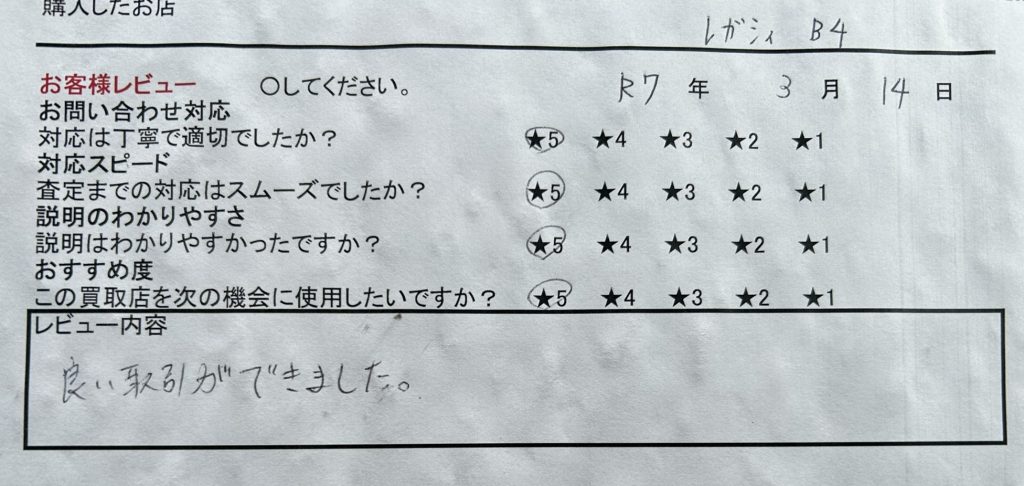 購入したお店
レガシィ B4
お客様レビュー ○してください。 R7 年 3 月 14 日
お問い合わせ対応
対応は丁寧で適切でしたか？ ★5 ★4 ★3 ★2 ★1
対応スピード
査定までの対応はスムーズでしたか？ ★5 ★4 ★3 ★2 ★1
説明のわかりやすさ
説明はわかりやすかったですか？ ★5 ★4 ★3 ★2 ★1
おすすめ度
この買取店を次の機会に使用したいですか？ ★5 ★4 ★3 ★2 ★1
レビュー内容
良い取引ができました。